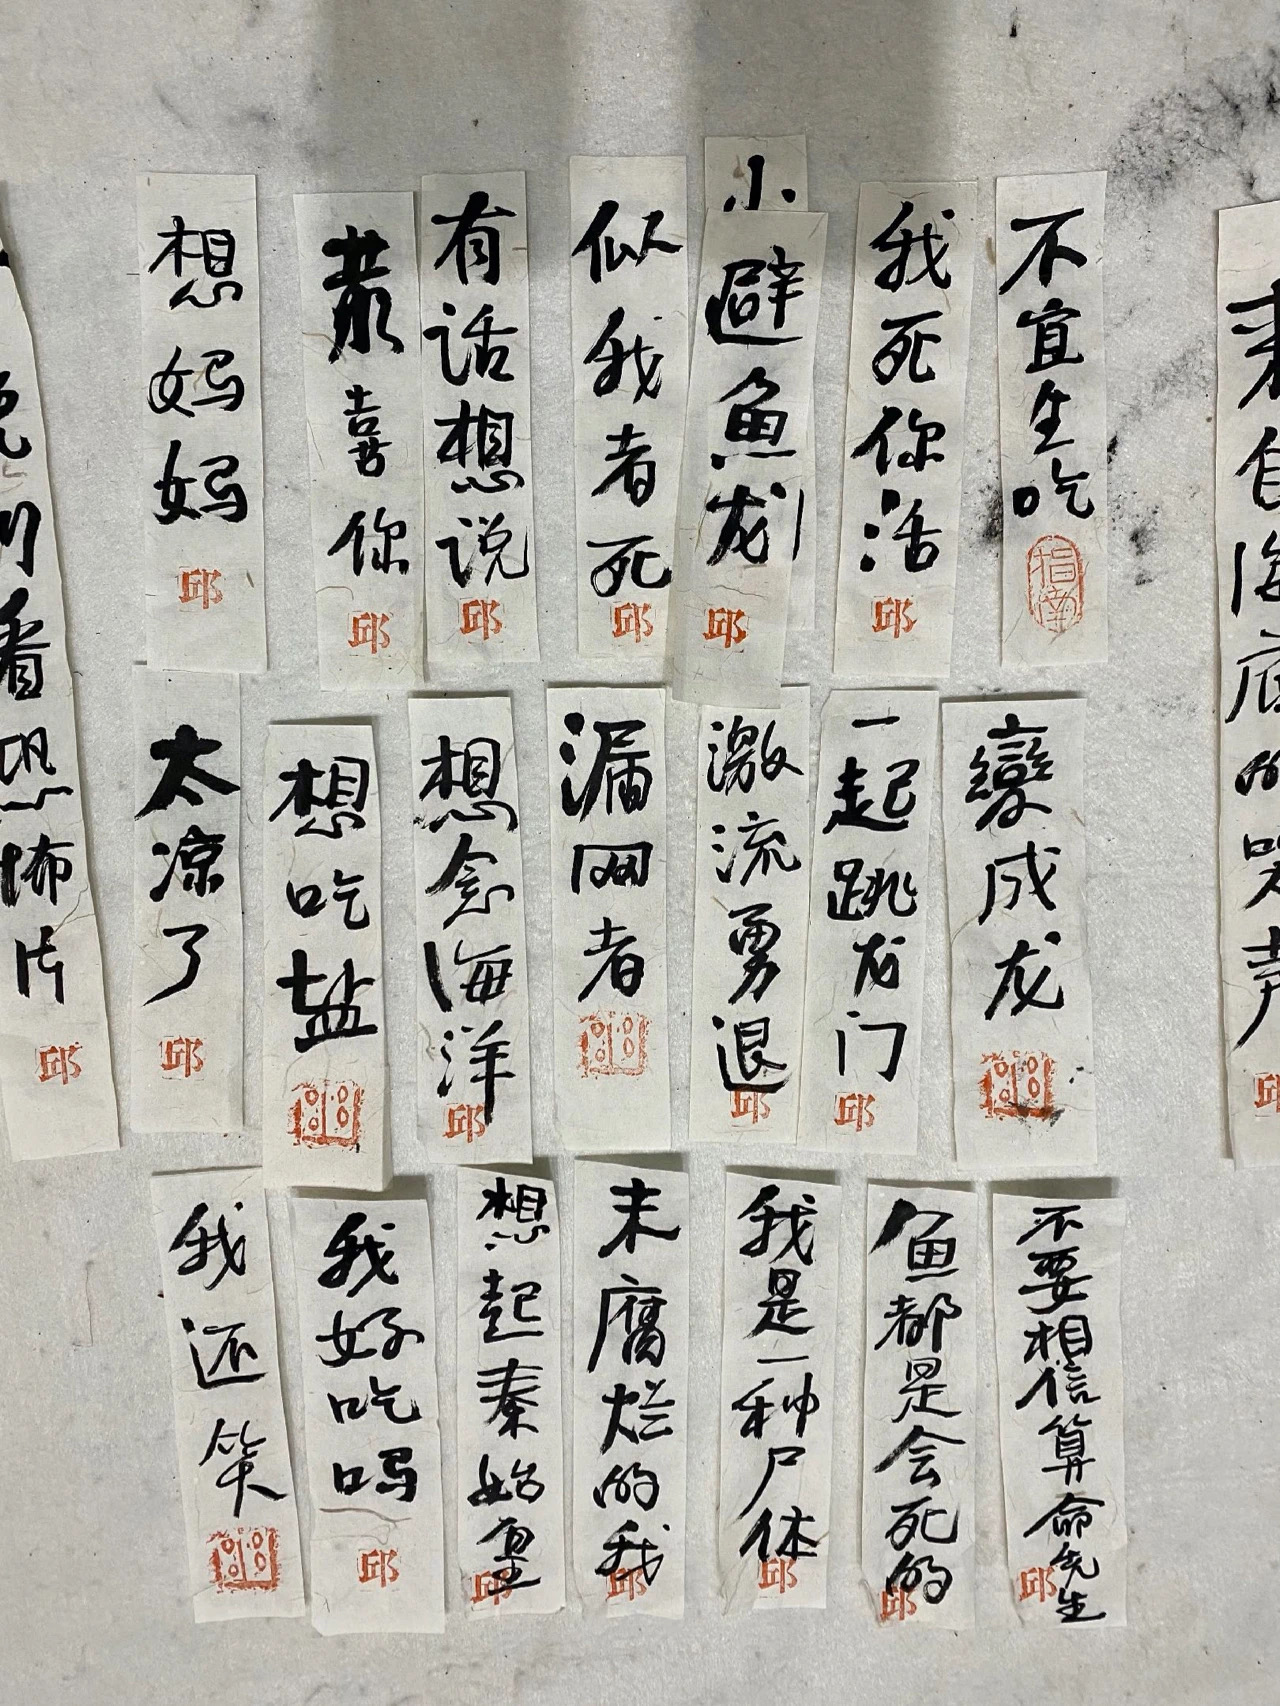 来自海底的哭声
邱
不宜生吃
指南
我死你活
邱
小避鱼
邱
似我者死
邱
有话想说
邱
喜你
邱
想妈妈
邱
變成龙
一起跳龙门
邱
激流勇退
邱
漏网者
想念海洋
邱
想吃盐
太凉了
邱
不要相信算命先生
邱
鱼都是会死的
邱
我是一种尸体
邱
未腐烂的我
邱
想起秦始皇
邱
我好吃吗
邱
我还
看恐怖片
邱